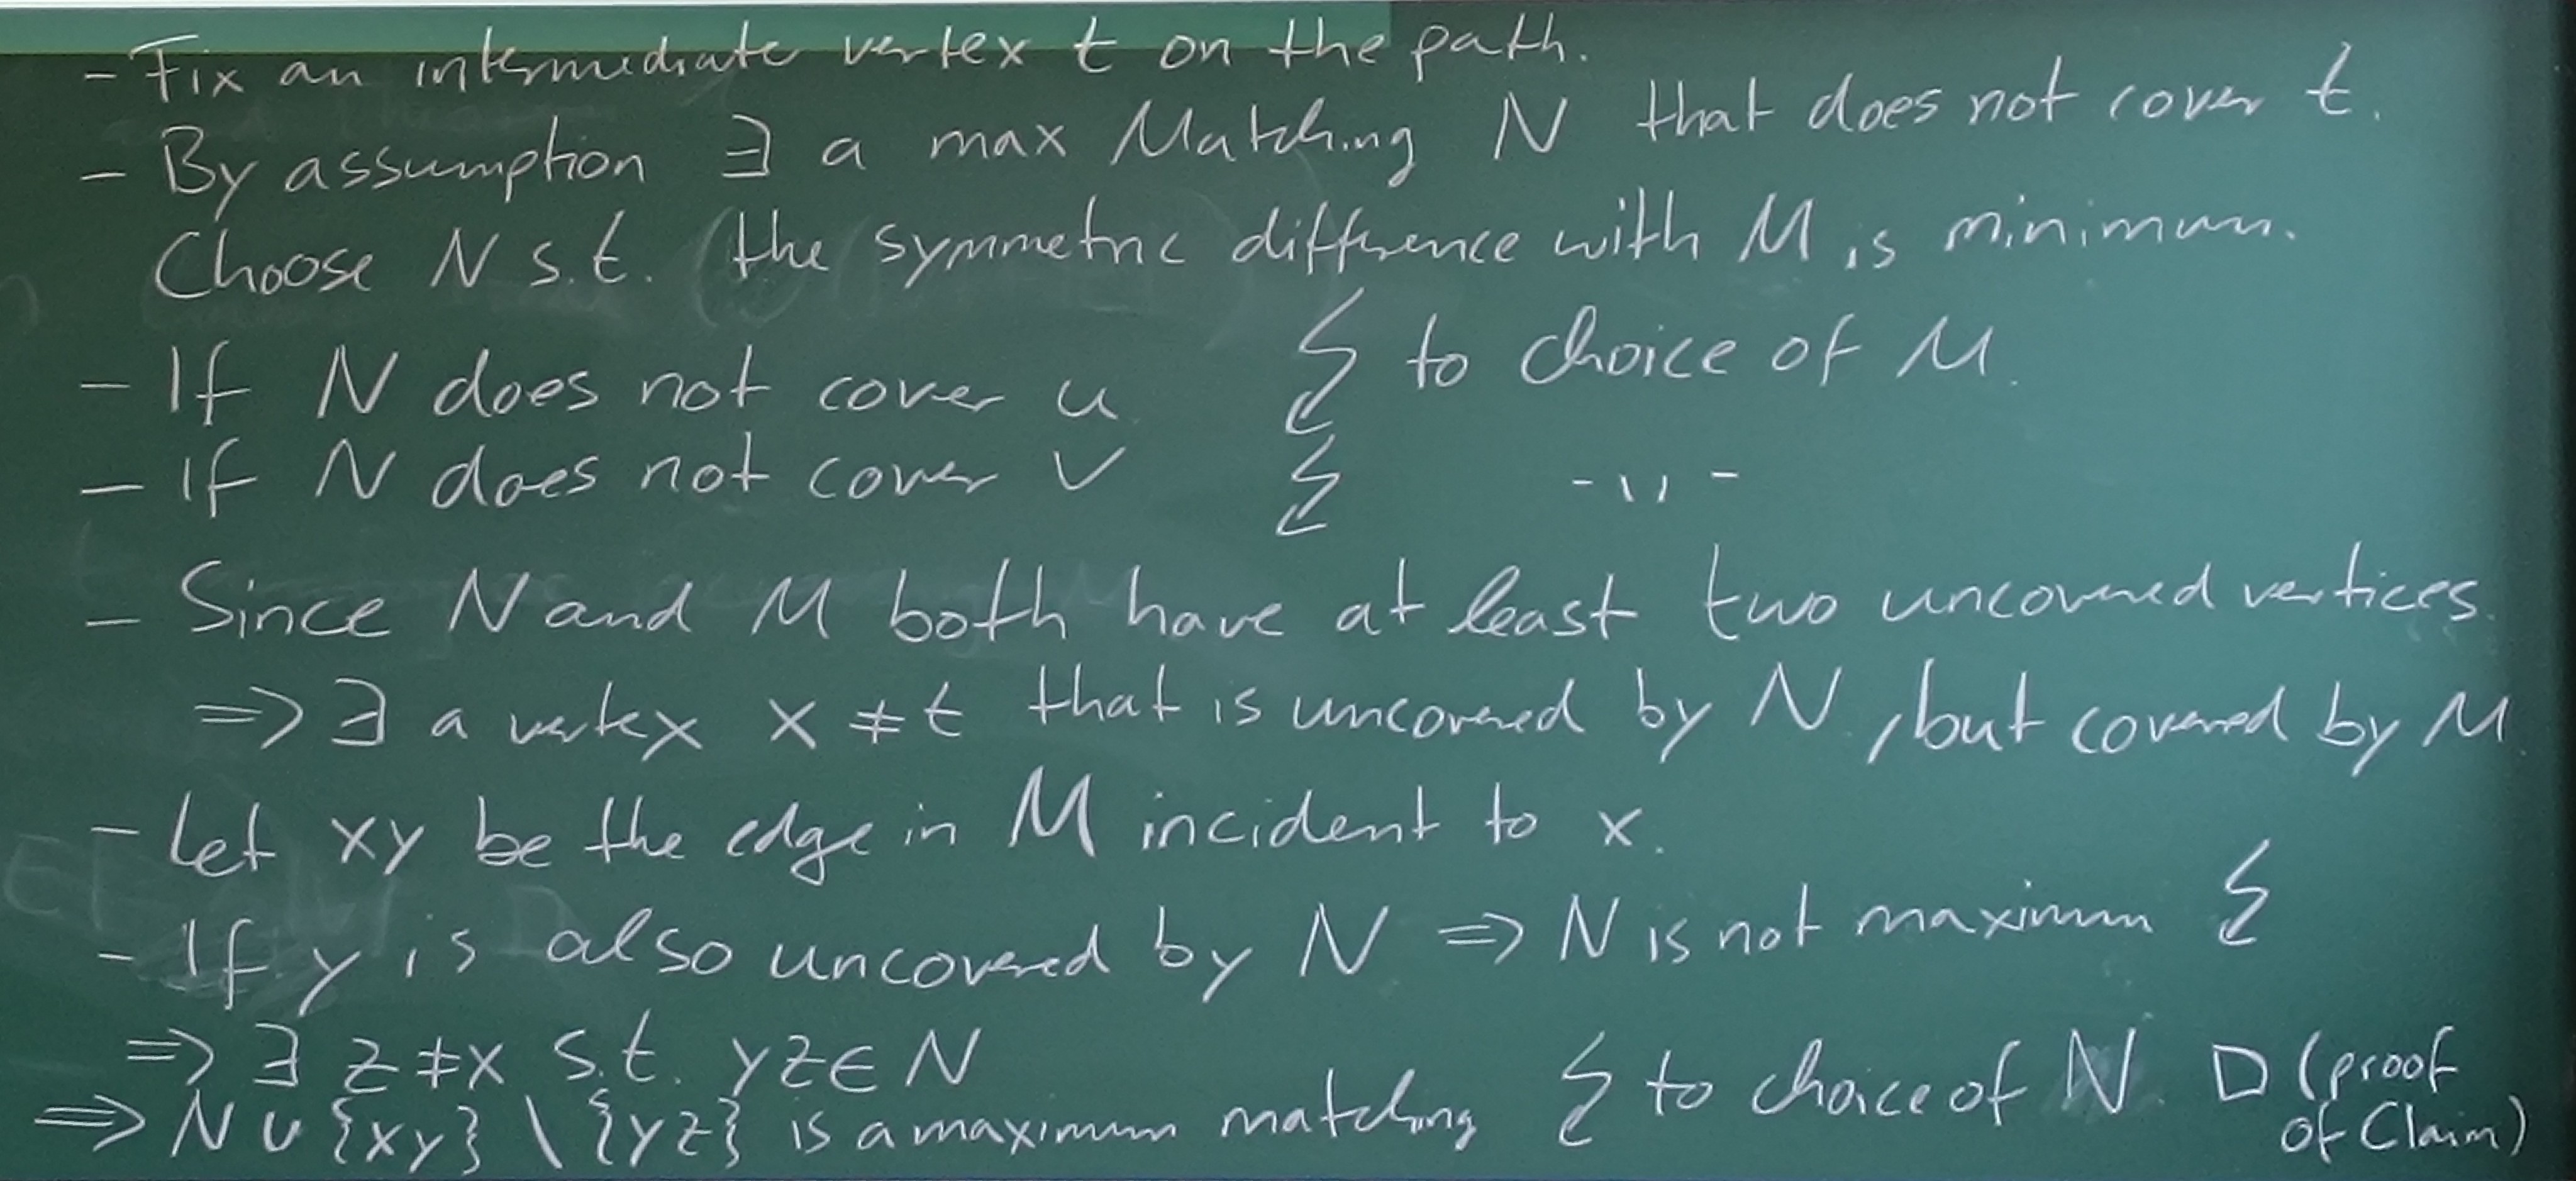 - Fix an intermediate vertex t on the path.
- By assumption ∃ a max Matching N that does not cover t.
Choose N s.t. (the symmetric difference with M is minimum.
- If N does not cover u ↯ to choice of M.
- If N does not cover v ↯ -"-
- Since N and M both have at least two uncovered vertices.
=> ∃ a vertex x ≠ t that is uncovered by N, but covered by M.
- Let xy be the edge in M incident to x.
- If y is also uncovered by N => N is not maximum ↯
=> ∃ z ≠ x s.t. yz ∈ N
=> N ∪ {xy} \ {yz} is a maximum matching ↯ to choice of N. □ (proof
of Claim)